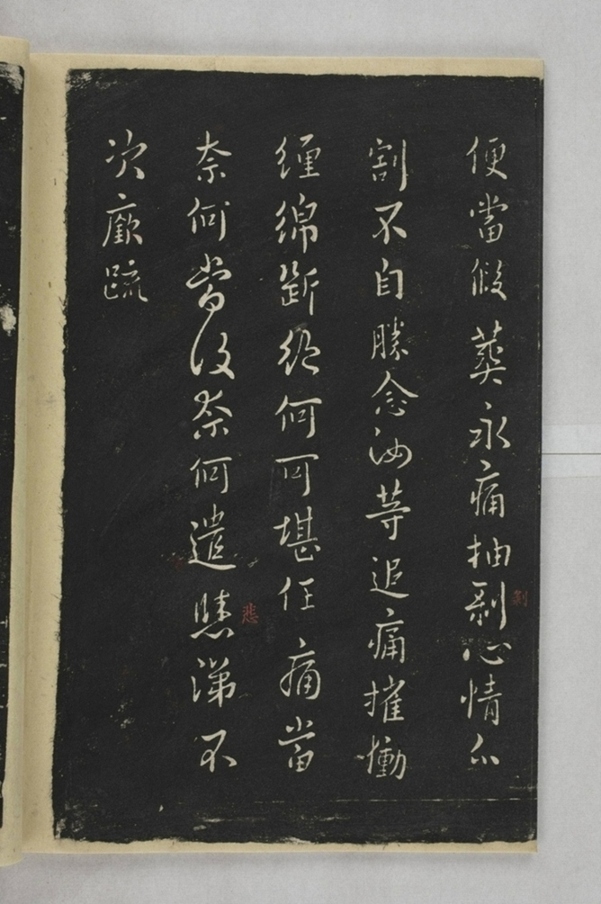 便當假葬永痛抽剝心情分
割不自勝念汝等追痛摧慟
纏綿斷絕何可堪任痛當
奈何當復奈何遣悲涕不
次廞疏
剝
悲